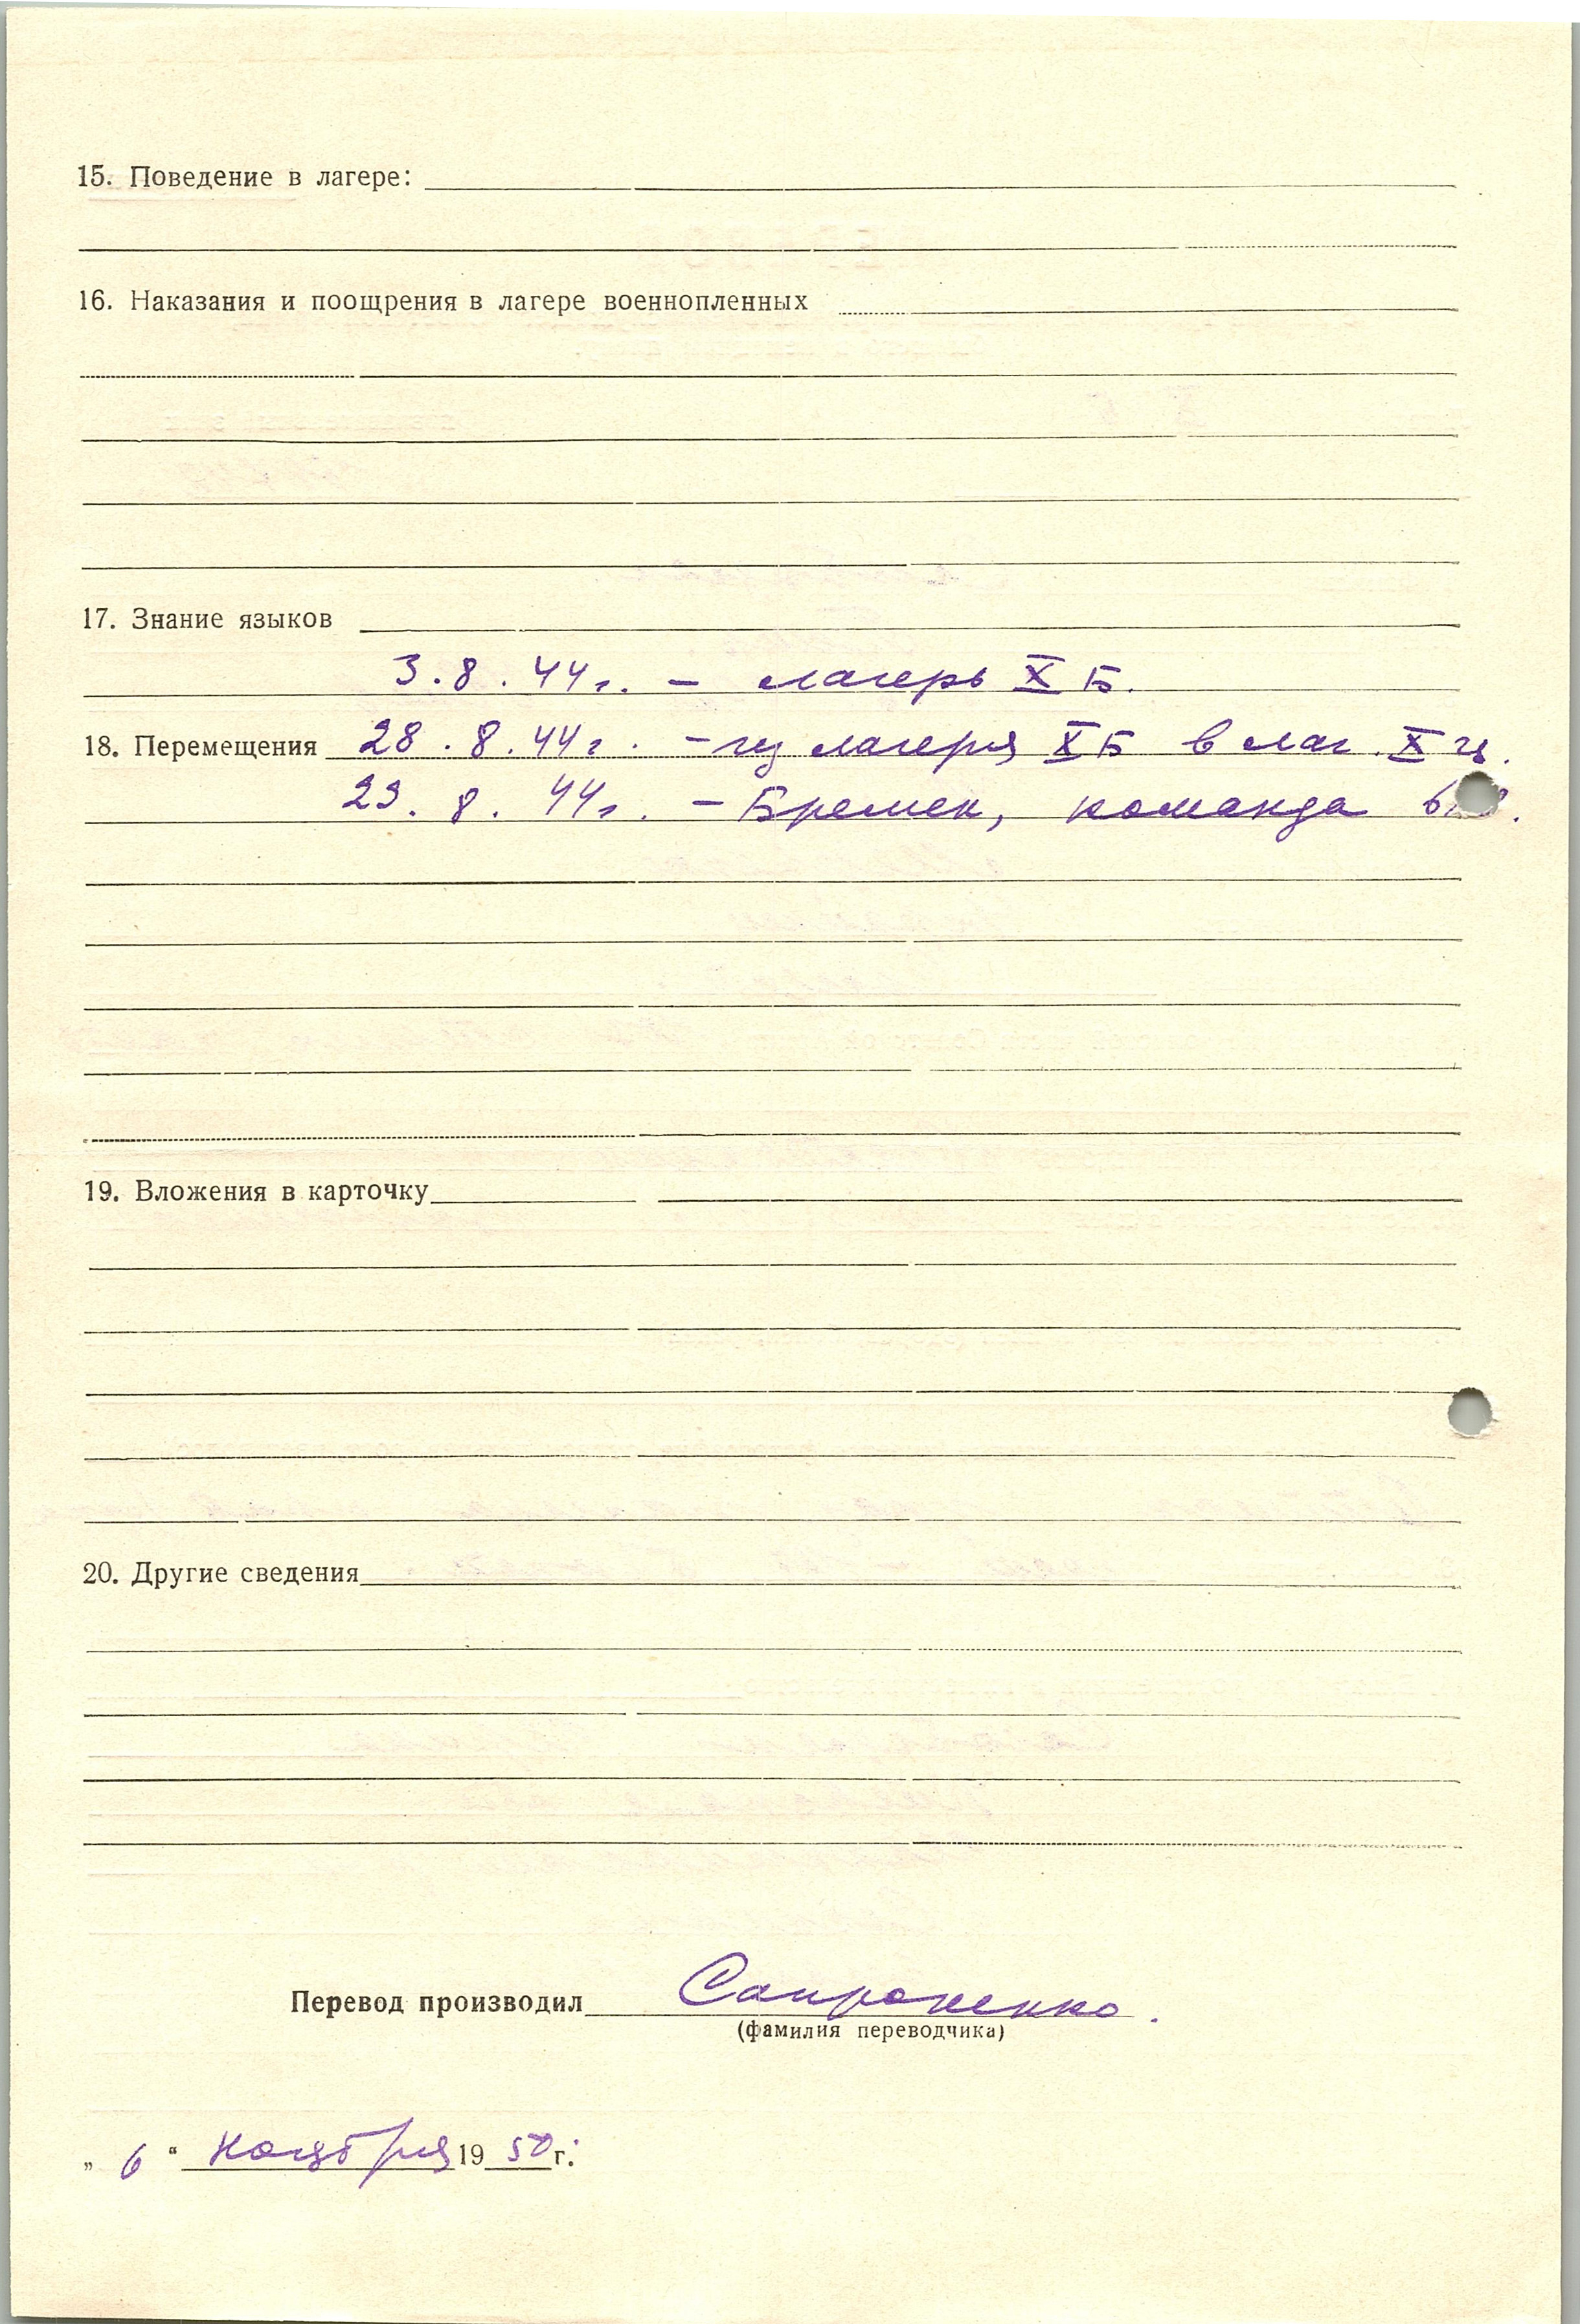 15. Поведение в лагере:
16. Наказания и поощрения в лагере военнопленных
17. Знание языков
3.8.44г. - лагерь X Б.
18. Перемещения 28.8.44г. - из лагеря X Б в лаг. X ц.
29.8.44г. - Бремен, команда
19. Вложения в карточку
20. Другие сведения
Перевод производил Сапроненко.
(фамилия переводчика)
„ 6 “ ноября 19 50 г.